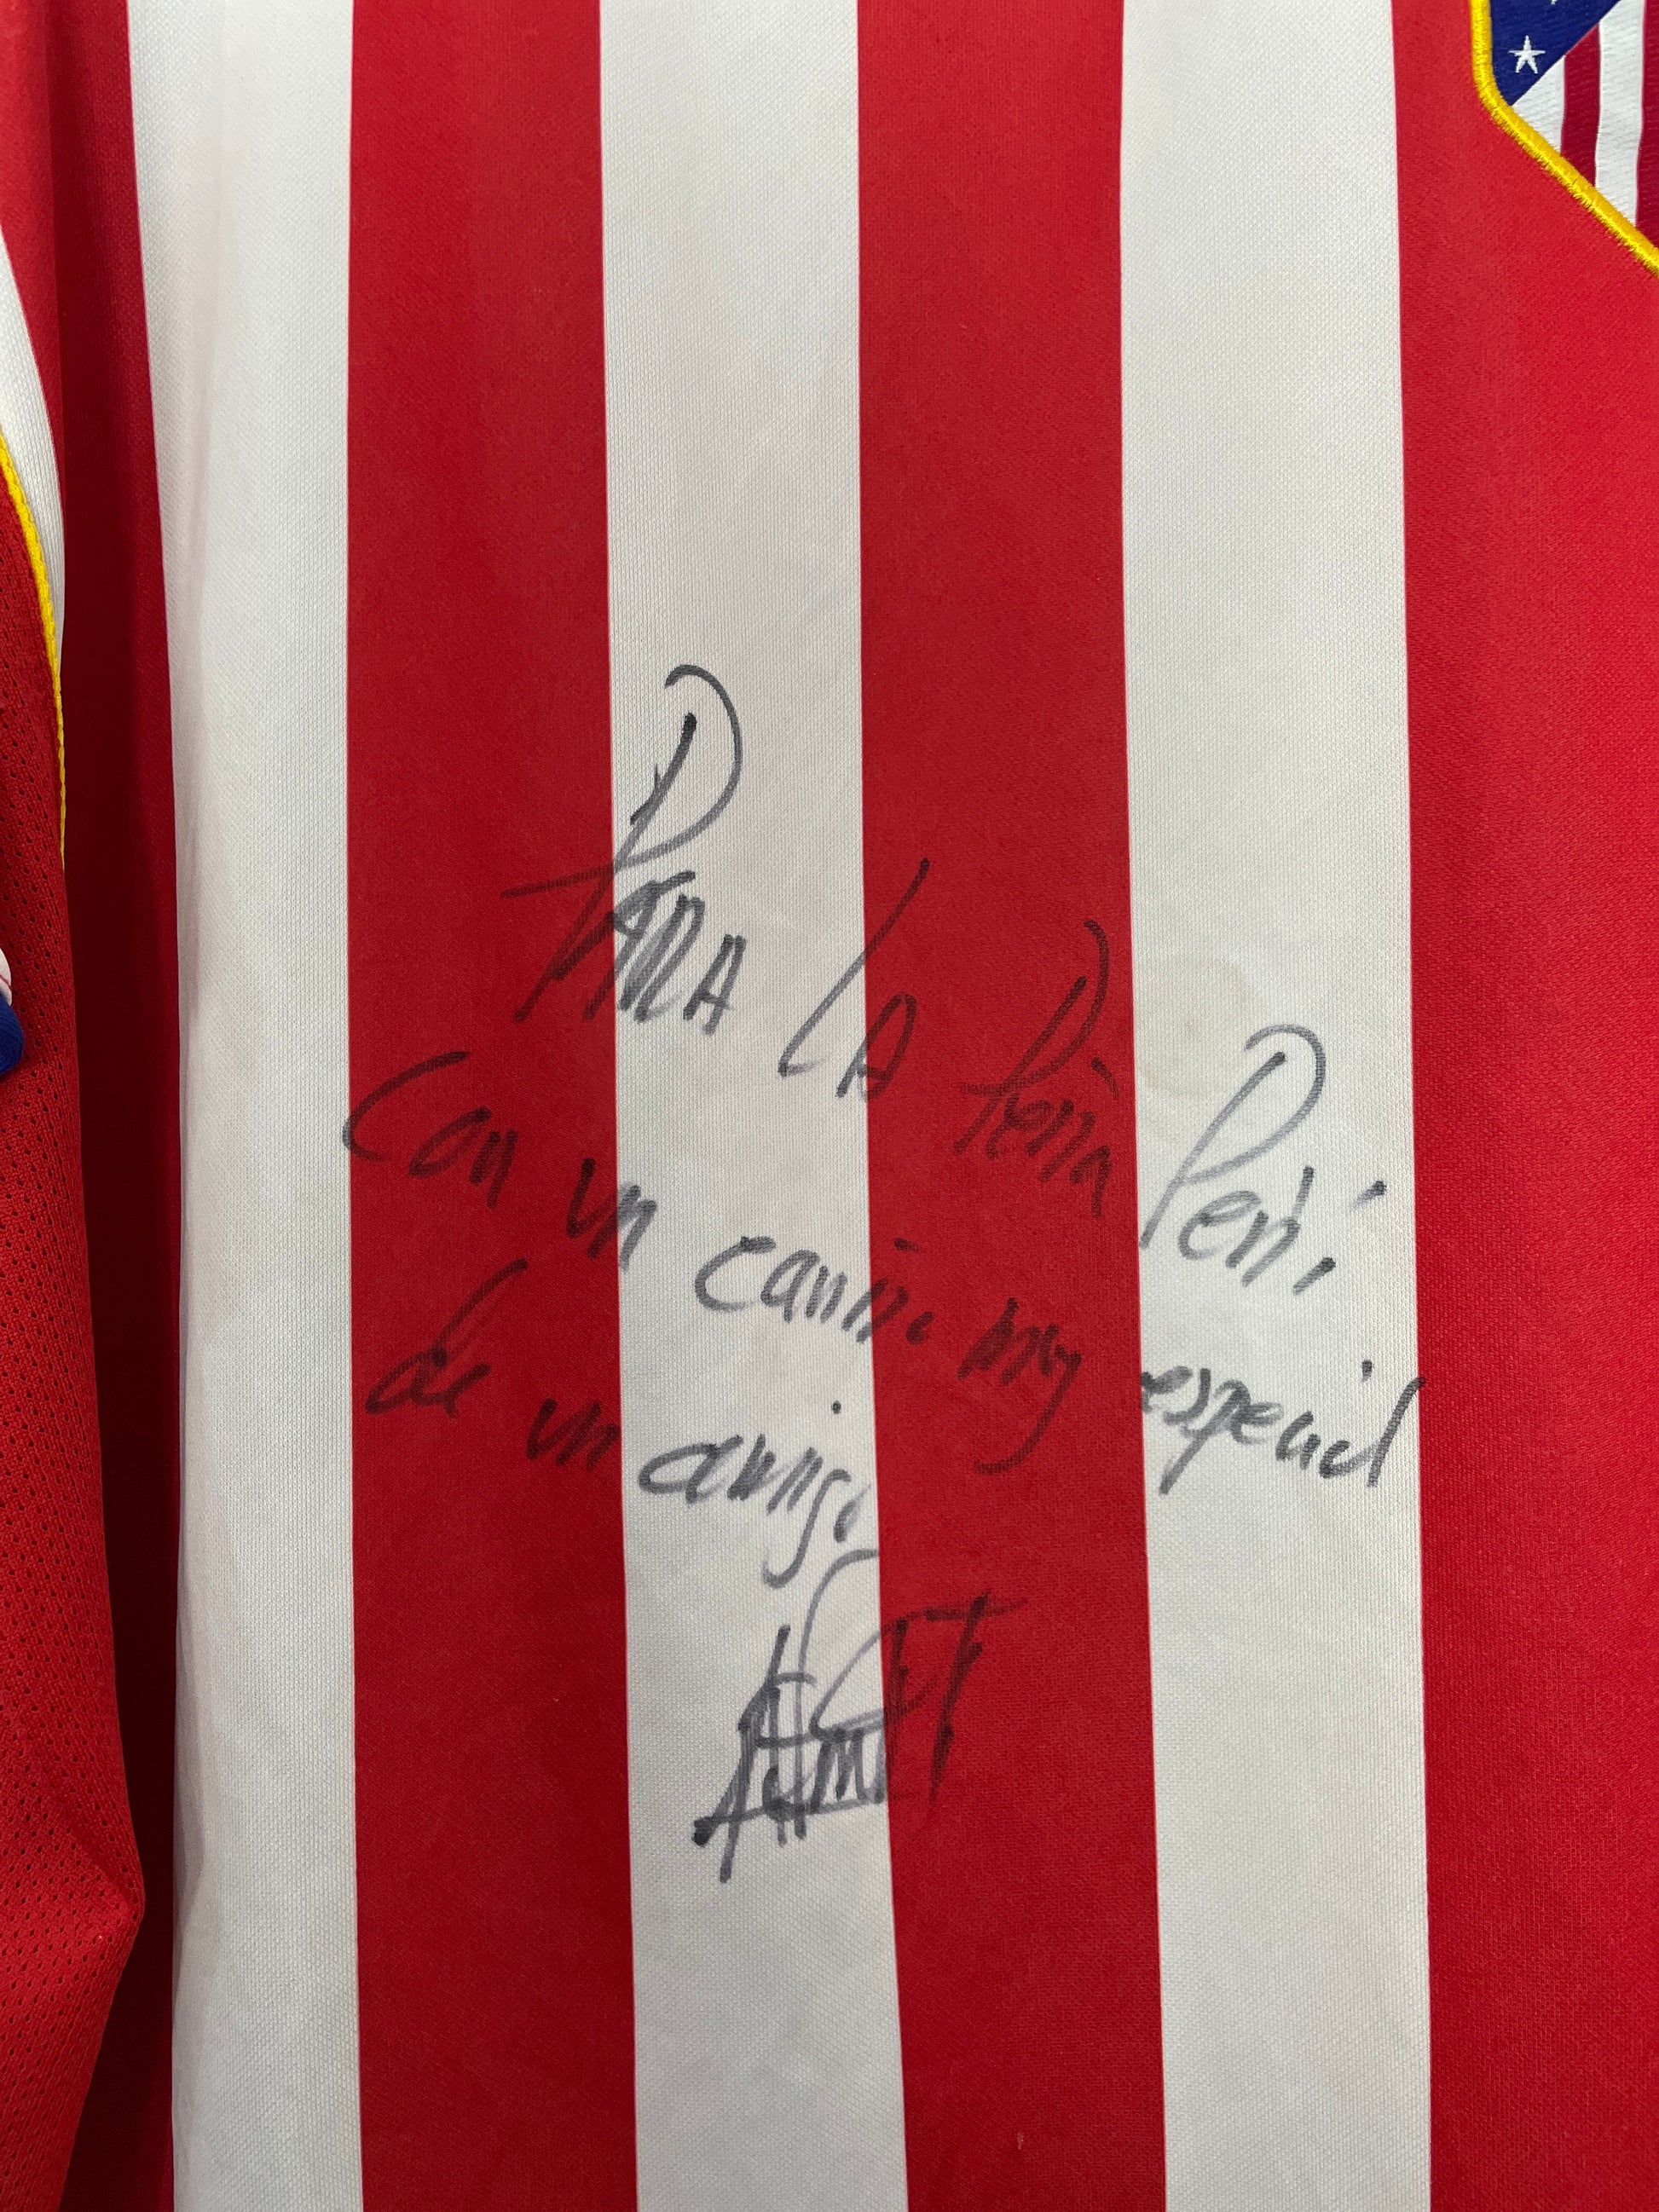 PARA LA Peña Peñi
Con un cariño muy especial
de un amigo